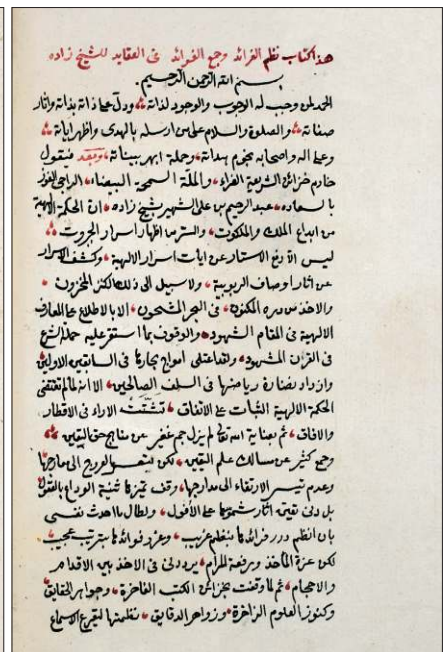 هذا كتاب نظم الفرائد وجمع الفوائد في العقايد للشيخ زاده
بسم الله الرحمن الرحيم
الحمد لمن وجب له الوجوب والوجود لذاته ودل على ذاته بذاته واثار
صفاته والصلوة والسلام على من ارسله بالهدى واظهر اياته
وعلى اله واصحابه نجوم هداته وحملة ابهر بيناته وبعد فيقول
خادم خزائن الشريعة الغراء والملة السمحة البيضاء الراجي الفوز
بالسعاده عبد الرحيم بن على الشهير بشيخ زاده ان الحكمة الالهية
من ابداع الملك والملكوت والسر من اظهار اسرار الجبروت
ليس الا رفع الاستار عن ايات اسرار الالهية وكشف الاسرار
عن اثار اوصاف الربوبية ولا سبيل الى ذلك الكنز المخزون
والاخذ من دره المكنون في البحر المشحون الا بالاطلاع على المعارف
الالهية في المقام الشهود والوقوف بما استقر عليه حملة الشرع
في القرن المشهود ولقد اعتلى امواج بحارها في السابقين الاولين
وازداد نضارة رياضها في السلف الصالحين الا انه لما لم تقتضى
الحكمة الالهية الثبات على الاتفاق تشتت الاراء في الاقطار
والافاق ثم بعناية الله تعالى لم يزل جم غفير عن مناهج حق اليقين
وجمع كثير عن مسالك علم اليقين لكن لتعسر العروج الى معارجها
وعدم تيسر الارتقاء الى مدارجها وقف تميزها ثنية الوداع بالقفول
بل دنى بقية اثار شموسها على الأفول ولطال ما احدث نفسى
بان انظم درر فرائدها بنظم غريب وغرر فوائدها بترتيب عجيب
لكن عزة المأخذ ورفعة المرام يرددنى في الاخذ بين الاقدام
والاحجام ثم لما وقفت بخزائن الكتب الفاخرة وجواهر الحقايق
وكنوز العلوم الزاخرة وزواهر الدقايق نظمتها لتقرع الاسماع